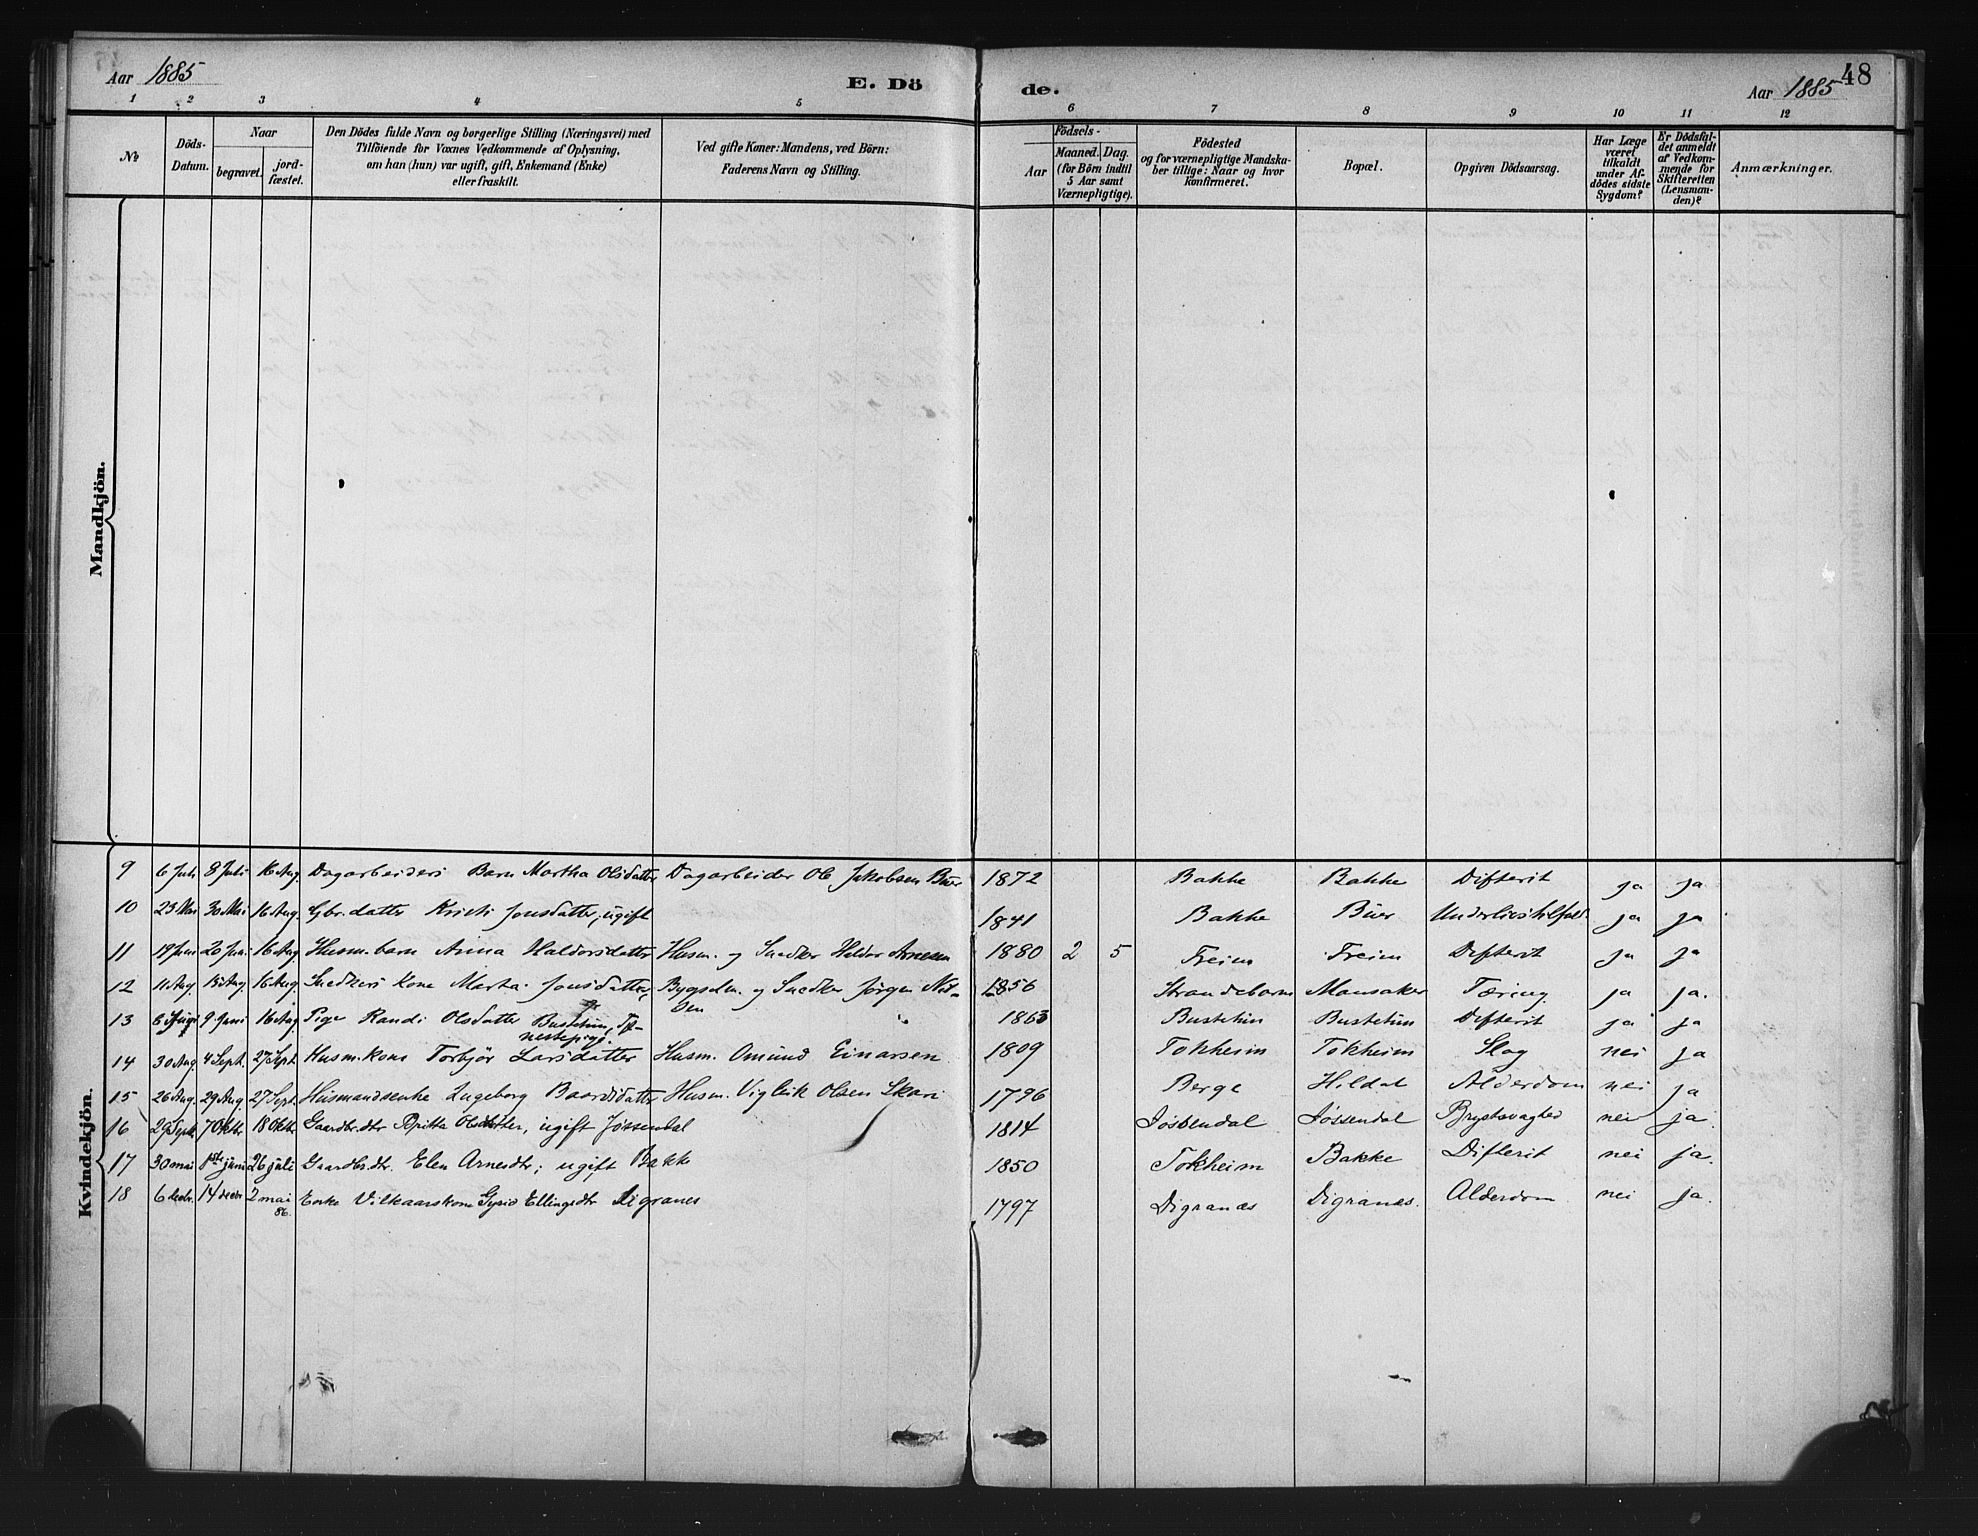 Aar 1885
E. Dö
de.
Aar 1885
48
1 2 3 4 5 6 7 8 9 10 11 12
№
Döds-Datum.
Naar
begravet.
jordfæstet.
Den Dödes fulde Navn og borgerlige Stilling (Næringsvei) med
Tilföiende for Voxnes Vedkommende af Oplysning,
om han (hun) var ugift, gift, Enkemand (Enke)
eller fraskilt.
Ved gifte Koner: Mandens, ved Börn:
Faderens Navn og Stilling.
Födsels-
Aar
Maaned. Dag.
(for Börn indtil
5 Aar samt
Værnepligtige).
Födested
og for værnepligtige Mandska-
ber tillige: Naar og hvor
konfirmeret.
Bopæl.
Opgiven Dödsaarsag.
Har Læge
været
tilkaldt
under Af-
dödes sidste
Sygdom?
Er Dödsfal-
det anmeldt
af Vedkom-
mende for
Skifteretten
(Lensman-
den)?
Anmærkninger.
Mandkjön.
Kvindekjön.
9 6 Juli 8 Juli 16 Aug. Dagarbeiders Barn Martha Olsdatter Dagarbeider Ole Jakobsen Buer 1872 Bakke Bakke Difterit ja ja
10 23 Mai 30 Mai 16 Aug. Gbr.datter Kristi Jonsdatter, ugift 1841 Bakke Buer ja ja
11 19 Juni 20 Juni 16 Aug. Husm.barn Anna Haldorsdatter Husm. og Snedker Haldor Arnesen 1880 2 5 Freim Freim Difterit ja ja
12 11 Aug. 15 Aug. 16 Aug. Snedkers Kone Marta Jonsdatter, Bygselm. og Snedker Jørgen Nil-
sen 1856 Strandebarm Mansaker Tæring ja ja.
13 6 Juni 9 Juni 16 Aug. Pige Randi Olsdatter Bustetun, Tje-
nestepige. " 1863 Bustetun Bustetun Difterit ja ja
14 30 Aug. 4 Sept. 27 Sept. Husm.kone Torbjør Larsdatter Husm. Omund Einarsen 1809 Tokheim Tokheim Slag nei ja
15 26 Aug. 29 Aug. 27 Sept. Husmandsenke Ingeborg Baardsdatter Husm. Vigleik Olsen Skare 1796 Berge Hildal Alderdom nei ja
16 29 Sept. 7 Oktbr 18 Oktbr. Gaardbr.dtr Britta Olsdatter, ugift Jøssendal 1814 Jøssendal Jøssendal Brystsvaghed nei ja.
17 30 mai 8 juni 26 juli Gaardbr.dtr. Elen Arnesdtr; ugift Bakke 1850 Tokheim Bakke Difterit nei ja.
18 6 decbr. 14 decbr 2 mai 86. Enke Vilkaarskone Gyrid Ellingsdtr Digranes 1797 Digranæs Digranæs. Alderdom nei ja.